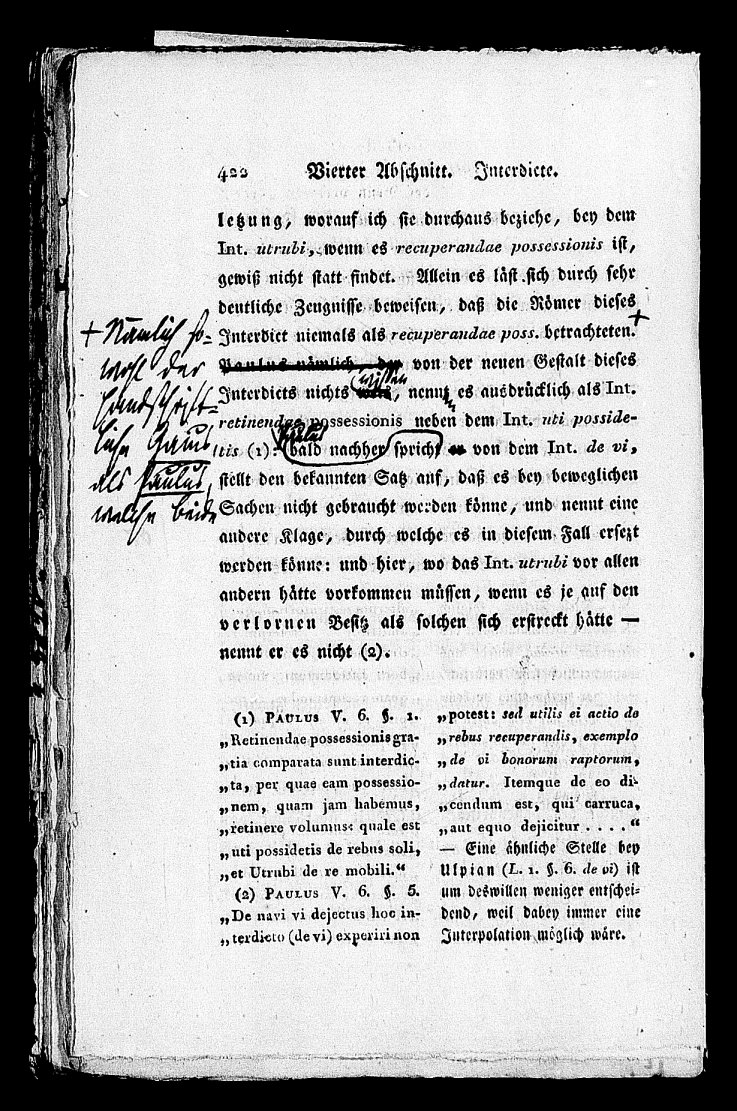 422 Vierter Abschnitt. Interdicte.
letzung, worauf ich sie durchaus beziehe, bey dem
Int. utrubi, wenn es recuperandae possessionis ist,
gewiß nicht statt findet. Allein es läßt sich durch sehr
deutliche Zeugnisse beweisen, daß die Römer dieses
Interdict niemals als recuperandae poss. betrachteten. +
Paulus nämlich, der von der neuen Gestalt dieses
Interdicts nichts wissen, nennt es ausdrücklich als Int.
retinendae possessionis neben dem Int. uti posside-
tis (1): Paulus bald nachher spricht er von dem Int. de vi,
stellt den bekannten Satz auf, daß es bey beweglichen
Sachen nicht gebraucht werden könne, und nennt eine
andere Klage, durch welche es in diesem Fall ersetzt
werden könne: und hier, wo das Int. utrubi vor allen
andern hätte vorkommen müssen, wenn es je auf den
verlornen Besitz als solchen sich erstreckt hätte —
nennt er es nicht (2).
+ Nämlich so-
wohl der
handschrift-
liche Gaius,
als Paulus,
welche beide
(1) PAULUS V. 6. §. 1.
„Retinendae possessionis gra-
„tia comparata sunt interdic-
„ta, per quae eam possessio-
„nem, quam jam habemus,
„retinere volumus: quale est
„uti possidetis de rebus soli,
„et Utrubi de re mobili.“
(2) PAULUS V. 6. §. 5.
„De navi vi dejectus hoc in-
„terdicto (de vi) experiri non
„potest: sed utilis ei actio de
„rebus recuperandis, exemplo
„de vi bonorum raptorum,
„datur. Itemque de eo di-
„cendum est, qui carruca,
„aut equo dejicitur . . . .“
— Eine ähnliche Stelle bey
Ulpian (L. 1. §. 6. de vi) ist
um deswillen weniger entschei-
dend, weil dabey immer eine
Interpolation möglich wäre.